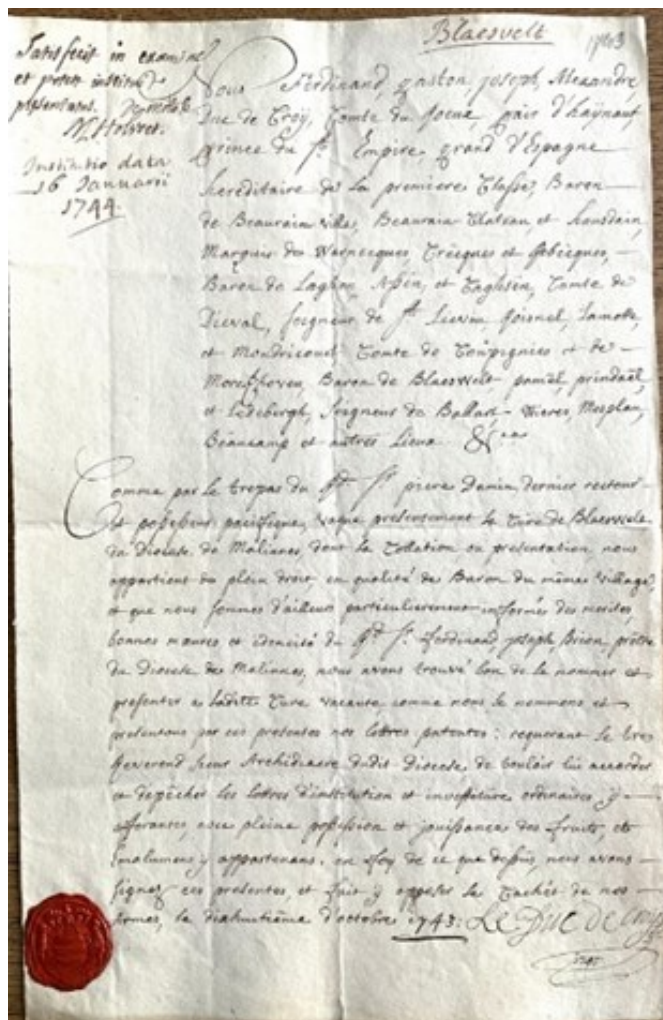 Blaesvelt 1743
Satisfecit in examine
et potest institui
presentatus.
Institutio data
16 Januarii
1744
Nous Ferdinand, gaston, joseph, Alexandre,
Duc de Croÿ, Comte du Roeux, pair d'haynaut,
prince du st. Empire, grand d'Espagne
hereditaire de la premiere Classe, Baron
de Beaurain ville, Beaurain Chateau, et
Marquis de Warnecques, Crecques et
Baron de et Comte de
Dieval, seigneur de st. Lievin Joisnel, Lamotte,
et Mondricourt, Comte de Coupignies et de
Moreghoven, Baron de Blaesvelt pamel, prindael,
et Ledebergh, seigneur de Mesplau,
Beaucamp et autres Lieux &c
Comme par le trepas du Sr. pierre Damin, dernier recteur
et possesseur pacifique, vaque presentement la Cure de Blaesvelt
du Diocese de Malinnes, dont la Collation ou presentation nous
appartient de plein droit en qualité de Baron du même village,
et que nous sommes d'ailleurs particulierement informés des merites,
bonnes mœurs et idoneité du Sr. ferdinand, joseph, Brion, prêtre
du Diocese de Malinnes, nous avons trouvé bon de le nommer et
presenter a ladite Cure vacante comme nous le nommons et
presentons par ces presentes nos lettres patentes: requerant le tres
Reverend sieur Archidiacre dudit Diocese de vouloir lui accorder
et depêcher les lettres d'institution et investiture ordinaires, y
afferantes, avec pleine possession et jouissance des fruits, et
Emolumens y appartenans. en foy de ce que dessus, nous avons
signez ces presentes, et fait y apposer le Cachet de nos
Armes, le dixhuitième d'octobre 1743: Le Duc de Croÿ